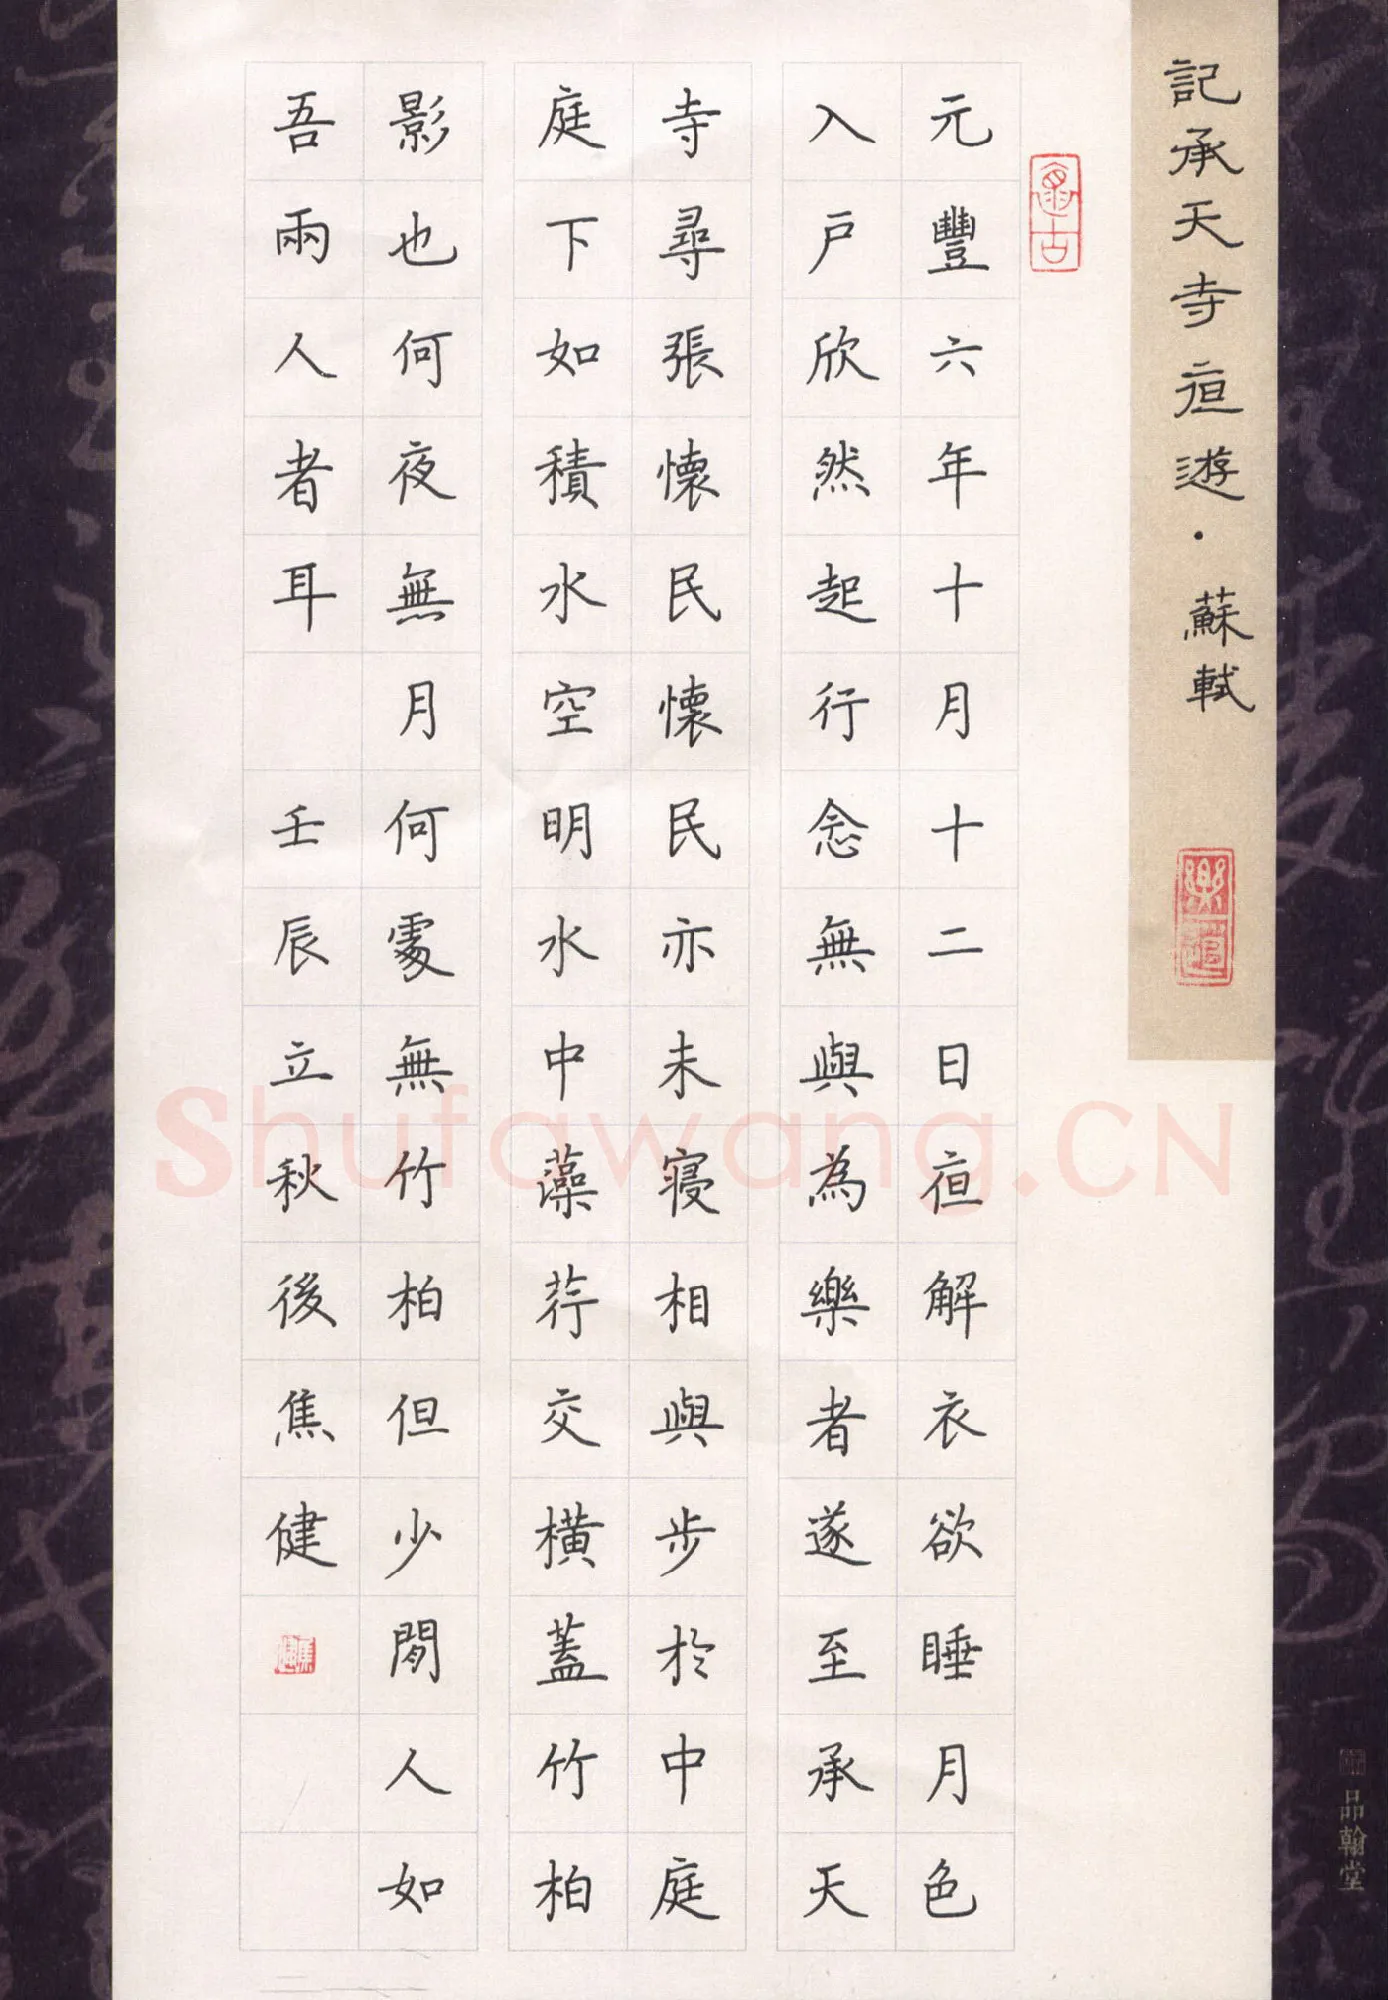 記承天寺亱遊·蘇軾
元豐六年十月十二日亱解衣欲睡月色
入户欣然起行念無與為樂者遂至承天
寺尋張懷民懷民亦未寝相與步於中庭
庭下如積水空明水中藻荇交橫蓋竹柏
影也何夜無月何處無竹柏但少閒人如
吾兩人者耳 壬辰立秋後焦健
焦健
品翰堂
Shufawang.CN